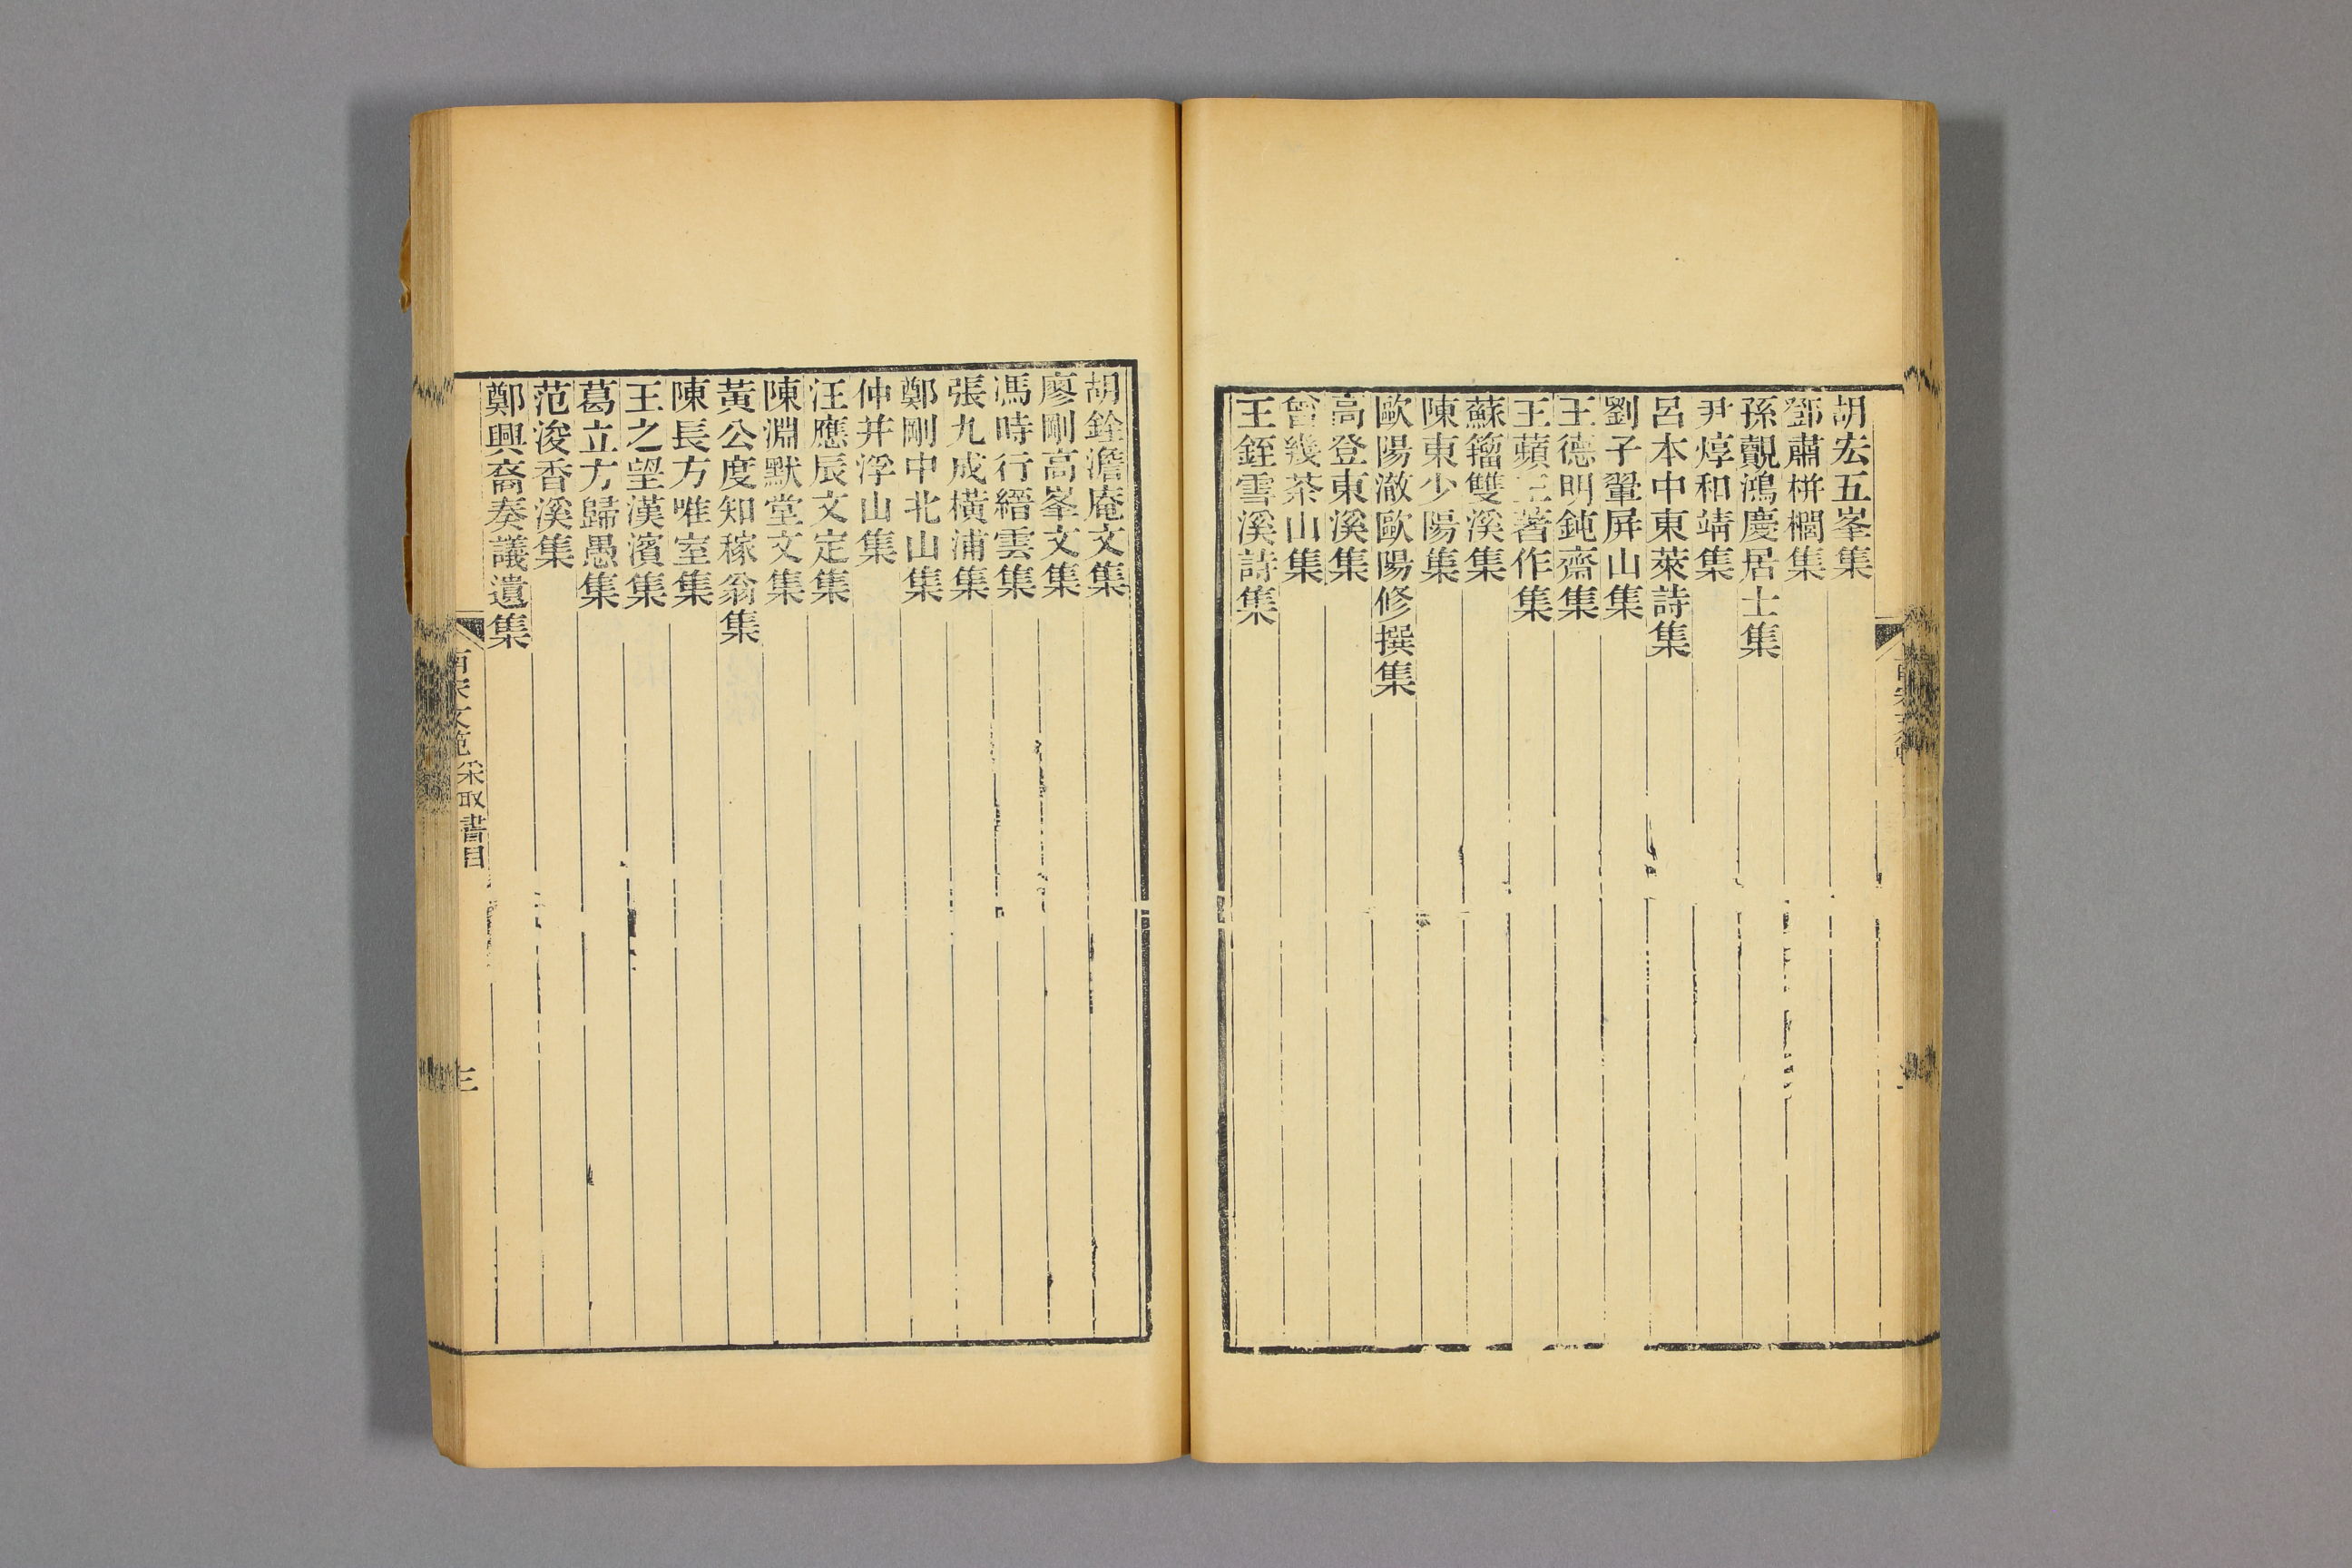 胡宏五峯集
鄧肅栟櫚集
孫覿鴻慶居士集
尹焞和靖集
呂本中東萊詩集
劉子翬屏山集
王德明鈍齋集
王蘋王著作集
蘇籀雙溪集
陳東少陽集
歐陽澈歐陽修撰集
高登東溪集
曾幾茶山集
王銍雪溪詩集
胡銓澹庵文集
廖剛高峯文集
馮時行縉雲集
張九成橫浦集
鄭剛中北山集
仲并浮山集
汪應辰文定集
陳淵默堂文集
黃公度知稼翁集
陳長方唯室集
王之望漢濱集
葛立方歸愚集
范浚香溪集
鄭興裔奏議遺集
南宋文範 采取書目
三